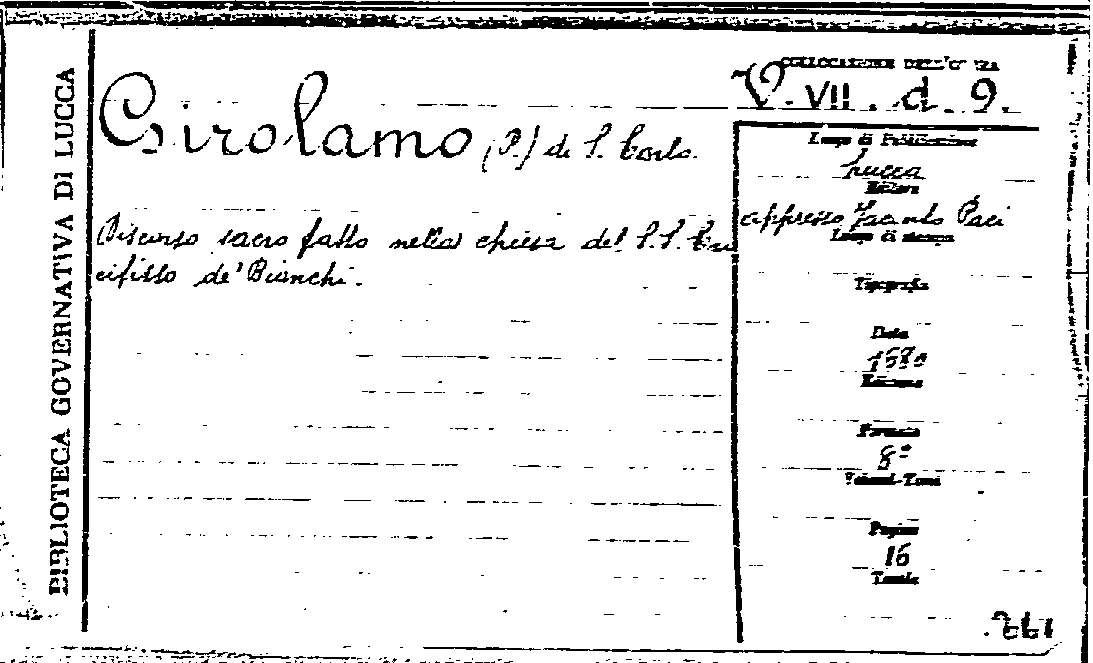 BIBLIOTECA GOVERNATIVA DI LUCCA
COLLOCAZIONE DELL'OPERA
V. VII. d. 9.
Girolamo (P.) di S. Carlo.
Discorso sacro fatto nella chiesa del S.S. Cro
cifisso de' Bianchi.
Luogo di Pubblicazione
Lucca
Editore
appresso Jacinto Paci
Luogo di stampa
Tipografia
Data
Edizione
Formato
8º
Volumi-Tomi
Pagine
16
Tavole